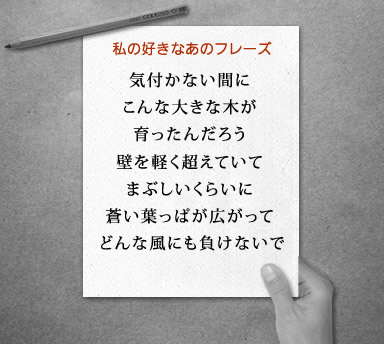 私の好きなあのフレーズ
気付かない間に
こんな大きな木が
育ったんだろう
壁を軽く超えていて
まぶしいくらいに
蒼い葉っぱが広がって
どんな風にも負けないで